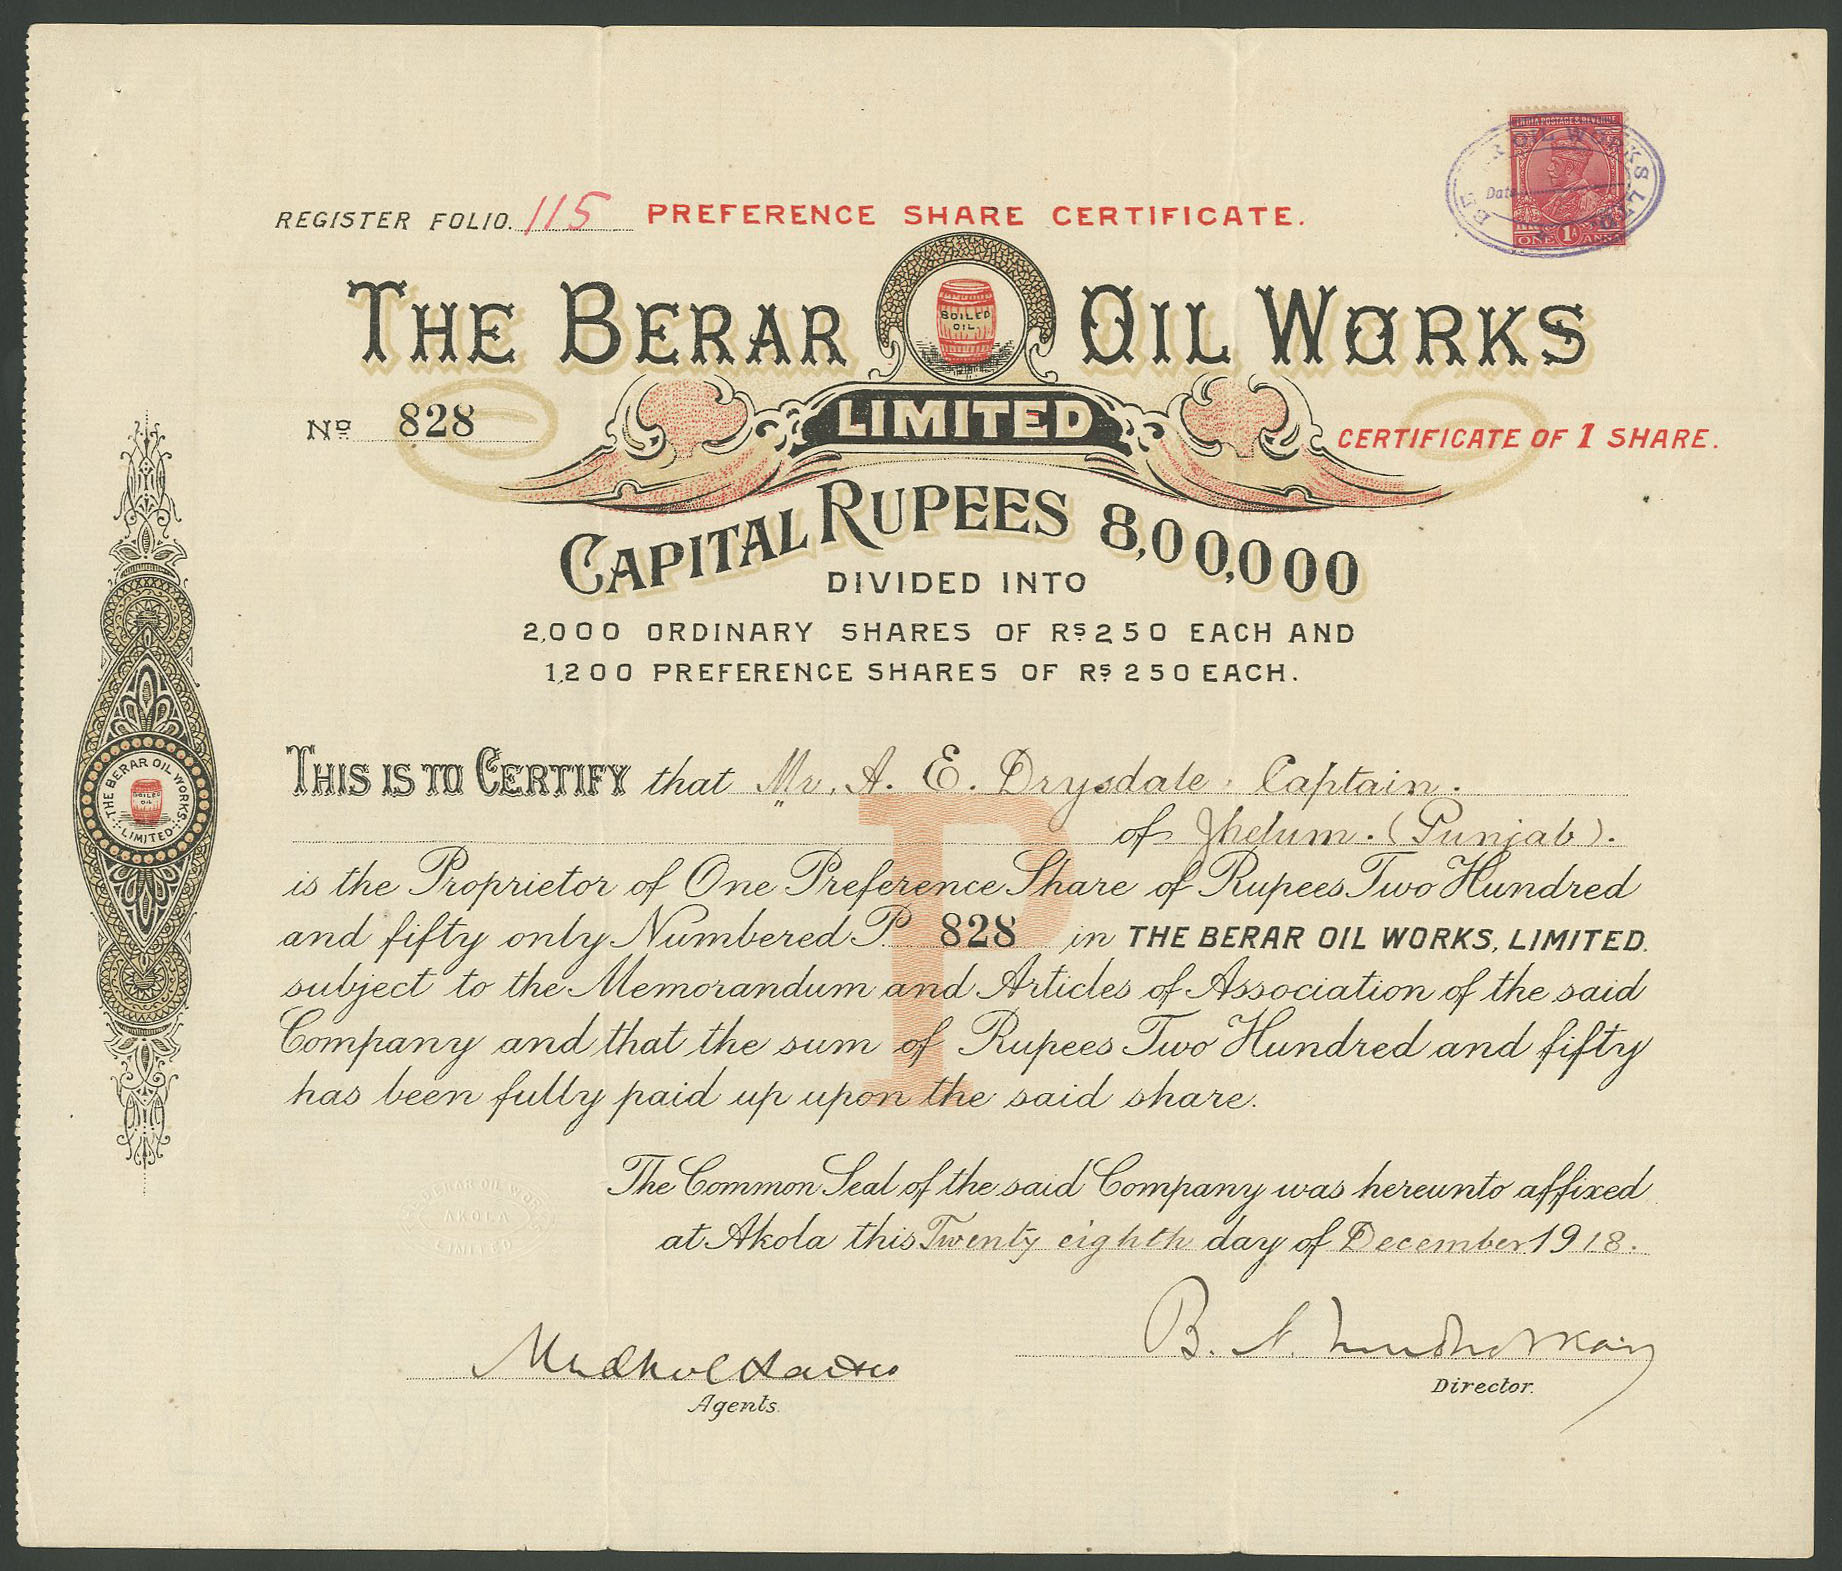 INDIA POSTAGE & REVENUE
OIL WORKS LTD
Date
ONE 1A ANNA
REGISTER FOLIO. 115 PREFERENCE SHARE CERTIFICATE.
THE BERAR OIL WORKS
BOILED
OIL.
LIMITED
No 828
CERTIFICATE OF 1 SHARE.
CAPITAL RUPEES 8,00,000
DIVIDED INTO
2,000 ORDINARY SHARES OF Rs 250 EACH AND
1,200 PREFERENCE SHARES OF Rs 250 EACH.
THE BERAR OIL WORKS
BOILED
OIL
LIMITED
THIS IS TO CERTIFY that Mr. A. E. Drysdale, Captain.
of Jhelum. (Punjab).
P
is the Proprietor of One Preference Share of Rupees Two Hundred
and fifty only Numbered P. 828 in THE BERAR OIL WORKS, LIMITED.
subject to the Memorandum and Articles of Association of the said
Company and that the sum of Rupees Two Hundred and fifty
has been fully paid up upon the said share.
The Common Seal of the said Company was hereunto affixed
at Akola this Twenty eighth day of December 1918.
BERAR OIL WORKS
AKOLA
LIMITED
B. N.
Agents.
Director.